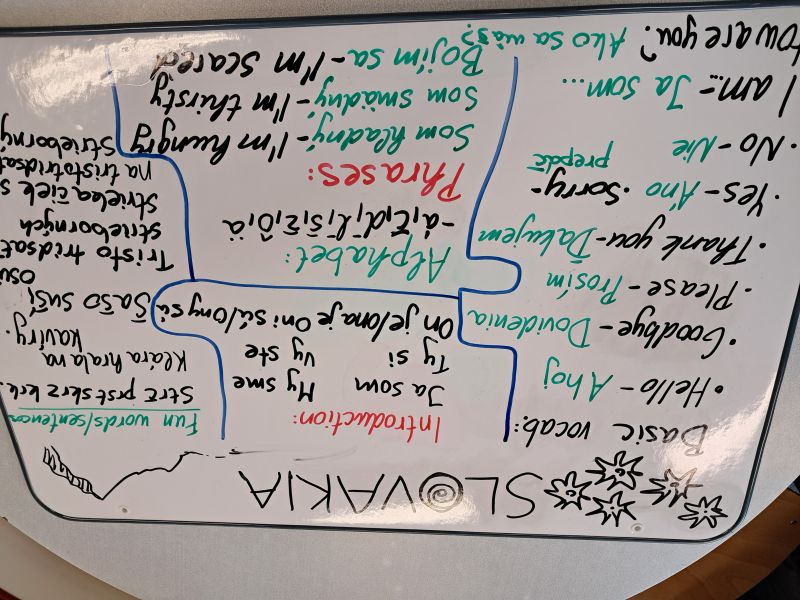 SLOVAKIA
Basic vocab:
• Hello - Ahoj
• Goodbye - Dovidenia
• Please - Prosím
• Thank you - Ďakujem
• Yes - Áno • Sorry - prepáč
• No - Nie
I am... - Ja som...
How are you? Ako sa máš?
Introduction:
Ja som My sme
Ty si Vy ste
On je/ona je Oni sú/ony sú
Alphabet:
- á, ž, ď, ľ, š, ž, ô, ä
Phrases:
Som hladný - I'm hungry
Som smädný - I'm thirsty
Bojím sa - I'm scared
Fun words/sentences
Strč prst skrz krk.
Klára hrala na
klavíry.
Šašo suší
Tristo tridsať
striebornych
Strieka čiek s
na tristotridsať
Strieborny